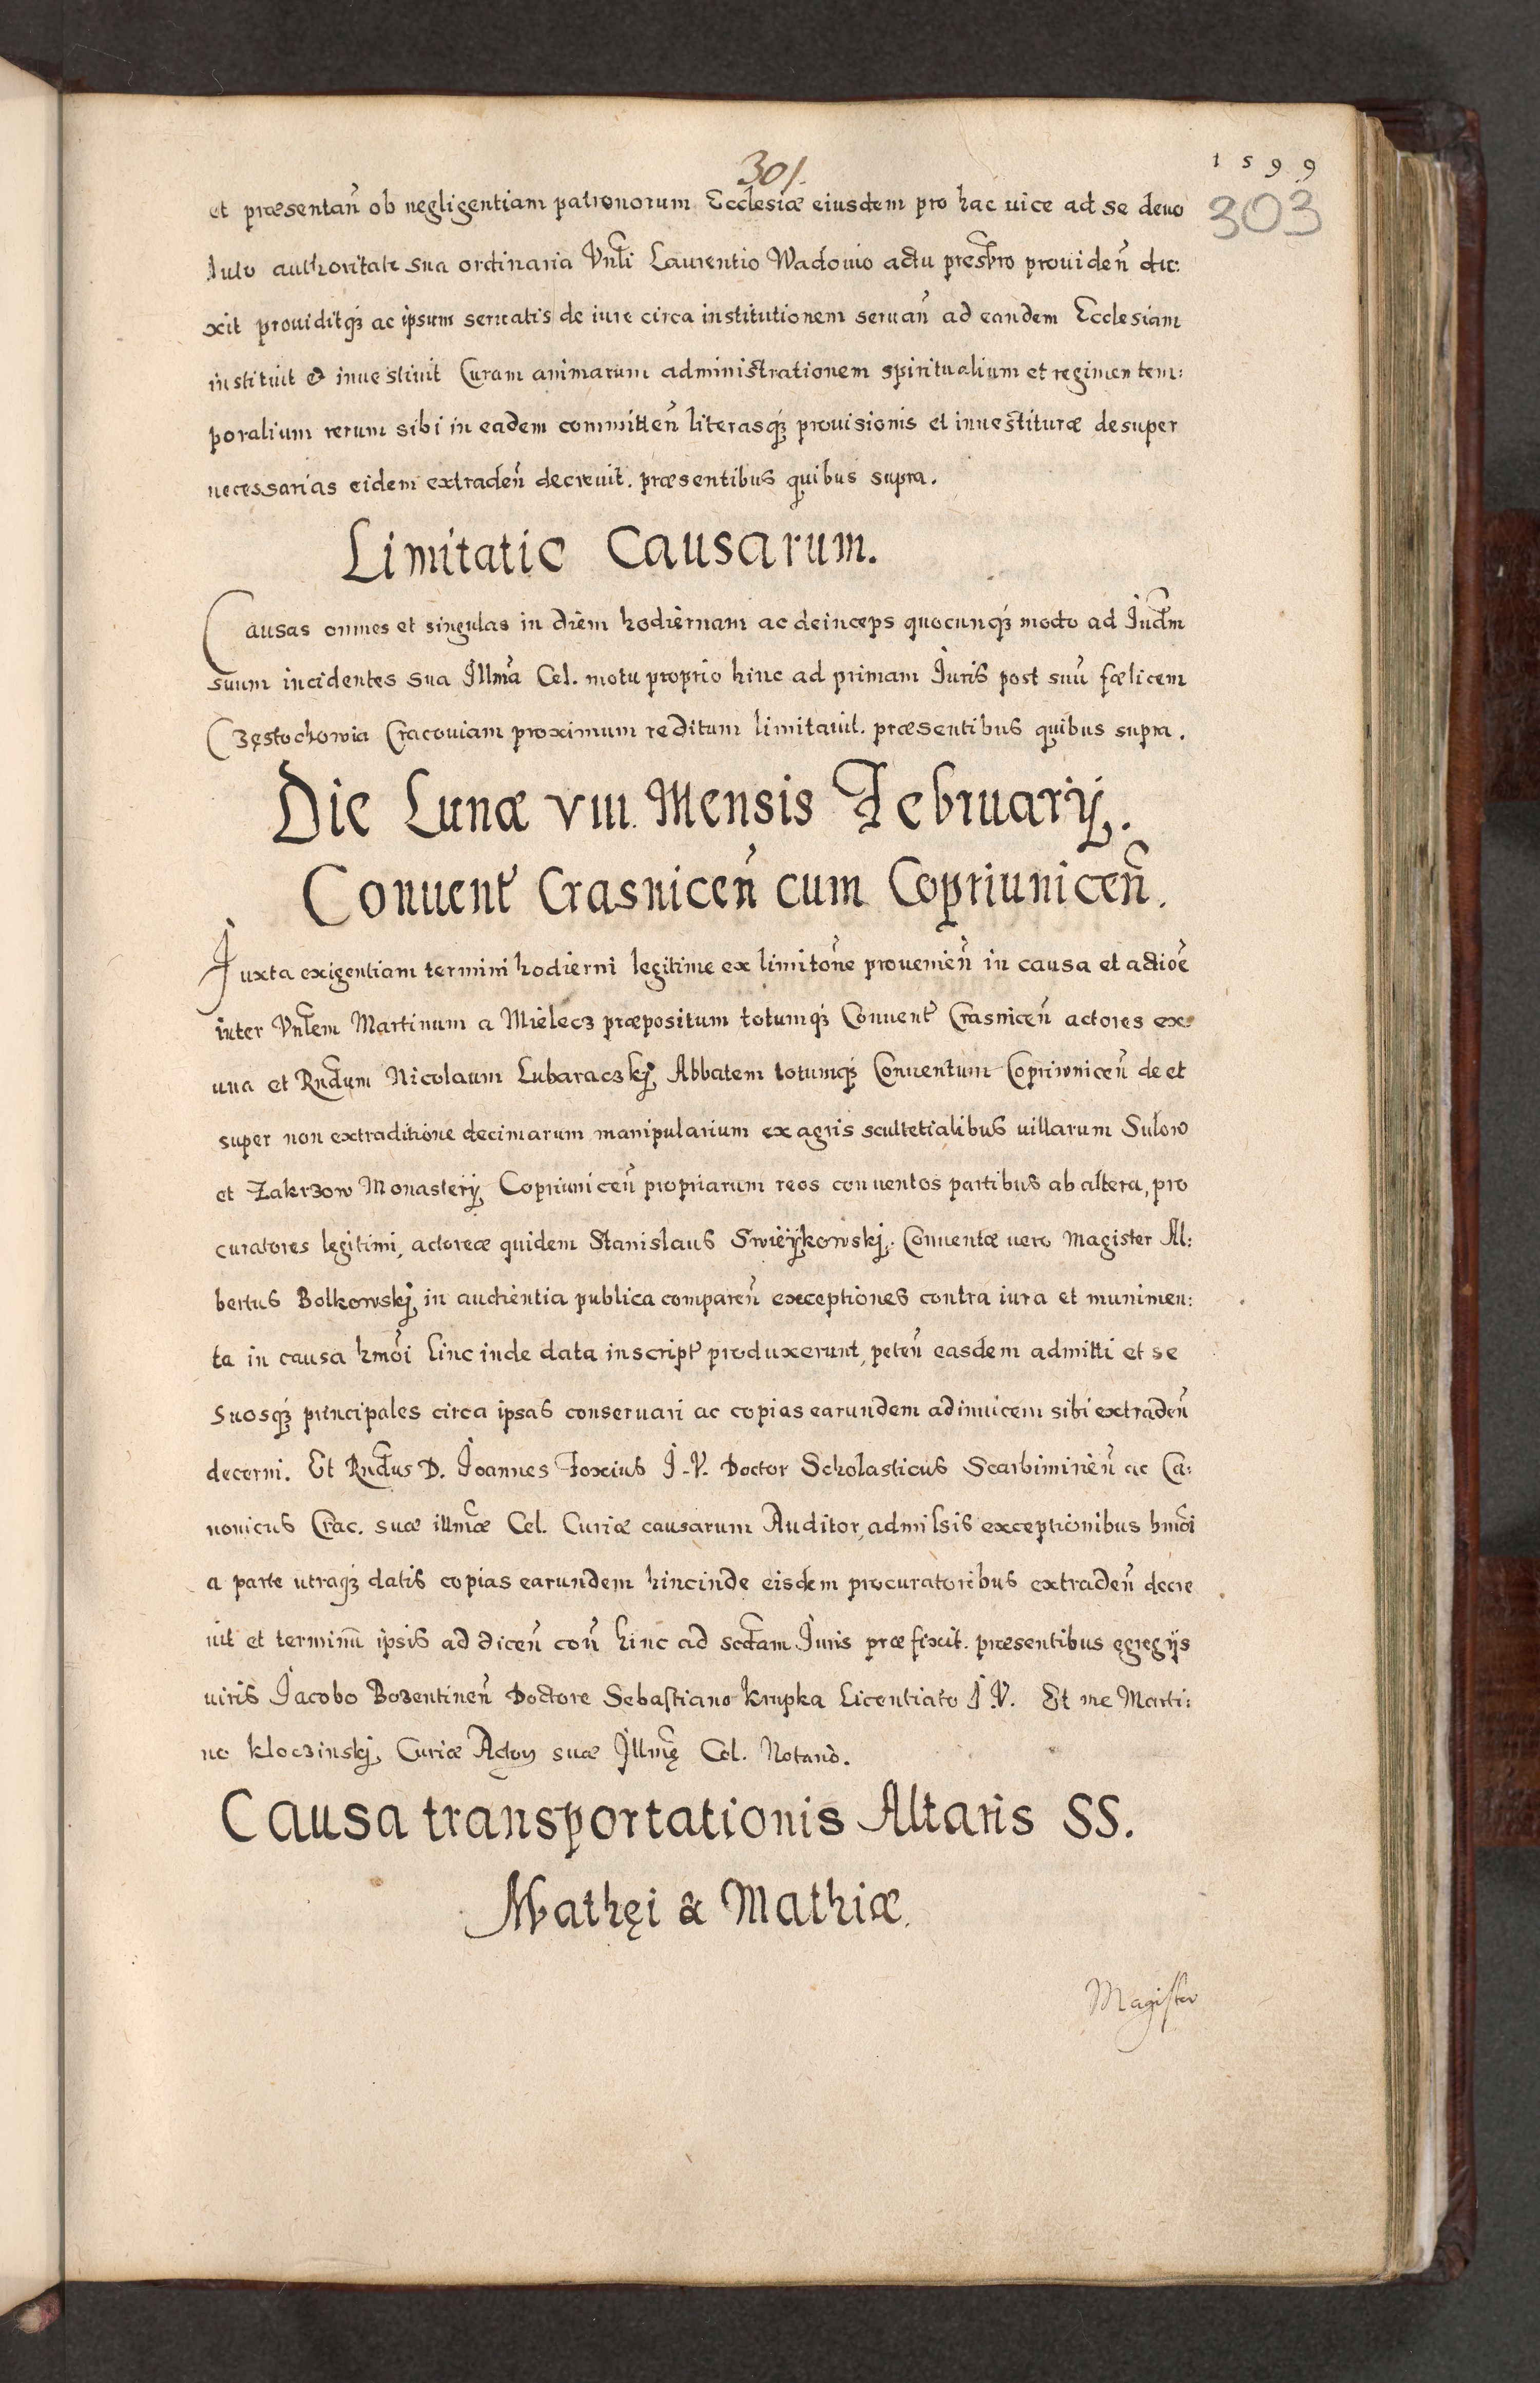 1599
301.
303
et præsentan̄ ob negligentiam patronorum Ecclesiæ eiusdem pro hac uice ad se deuo
luto authoritate sua ordinaria Vnli Laurentio Wadouio actu presbro prouiden̄ du:
xit prouiditq̃ ac ipsum seruatis de iure circa institutionem seruan̄ ad eandem Ecclesiam
instituit & inuestiuit Curam animarum administrationem spiritualium et regimen tem:
poralium rerum sibi in eadem committen̄ literasq̃ prouisionis et inuestituræ desuper
necessarias eidem extraden̄ decreuit. præsentibus quibus supra.
Limitatio Causarum.
Causas omnes et singulas in diem hodiernam ac deinceps quocunq̃ modo ad Iudm
suum incidentes sua Illma Cel. motu proprio hinc ad primam Iuris post suū fælicem
Częstochowia Cracouiam proximum reditum limitauit. præsentibus quibus supra.
Die Lunæ VIII. Mensis Februarij.
Conuent Crasnicen̄ cum Copriunicen̄.
Iuxta exigentiam termini hodierni legitime ex limitōne prouenien̄ in causa et actiōe
inter Vnlem Martinum a Mielecz præpositum totumq̃ Conuent Crasnicen̄ actores ex
una et Rndum Nicolaum Lubaraczkj Abbatem totumq̃ Conuentum Copriwnicen̄ de et
super non extraditione decimarum manipularium ex agris scultetialibus uillarum Sulow
et Zakrzow Monasterij Copriunicen̄ propriarum reos conuentos partibus ab altera, pro
curatores legitimi, actoreæ quidem Stanislaus Swieÿkowskj. Conuentæ uero Magister Al:
bertus Bolkowskj in audientia publica comparen̄ exceptiones contra iura et munimen:
ta in causa hmōi hinc inde data in script produxerunt, peten̄ easdem admitti et se
suosq̃ principales circa ipsas conseruari ac copias earundem adinuicem sibi extraden̄
decerni. Et Rndus D. Ioannes Foxius I.V. Doctor Scholasticus Scarbimirien̄ ac Ca:
nonicus Crac. suæ illmæ Cel. Curiæ causarum Auditor, admissis exceptionibus hmōi
a parte utraq̃ datis copias earundem hincinde eisdem procuratoribus extraden̄ decre
uit et terminū ipsis ad dicen̄ con̄ hinc ad scdam Iuris præfixit. præsentibus egregijs
uiris Iacobo Bozentinen̄ Doctore Sebastiano Krupka Licentiato I.V. Et me Marti:
no Kloczinskj, Curiæ Actor suæ Illmę Cel. Notario.
Causa transportationis Altaris SS.
Mathęi & Mathiæ.
Magister